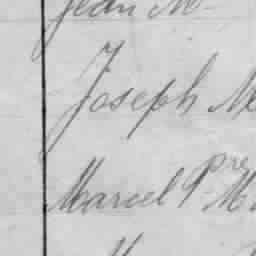 Jean M
Joseph Mc
Marcel Pre M